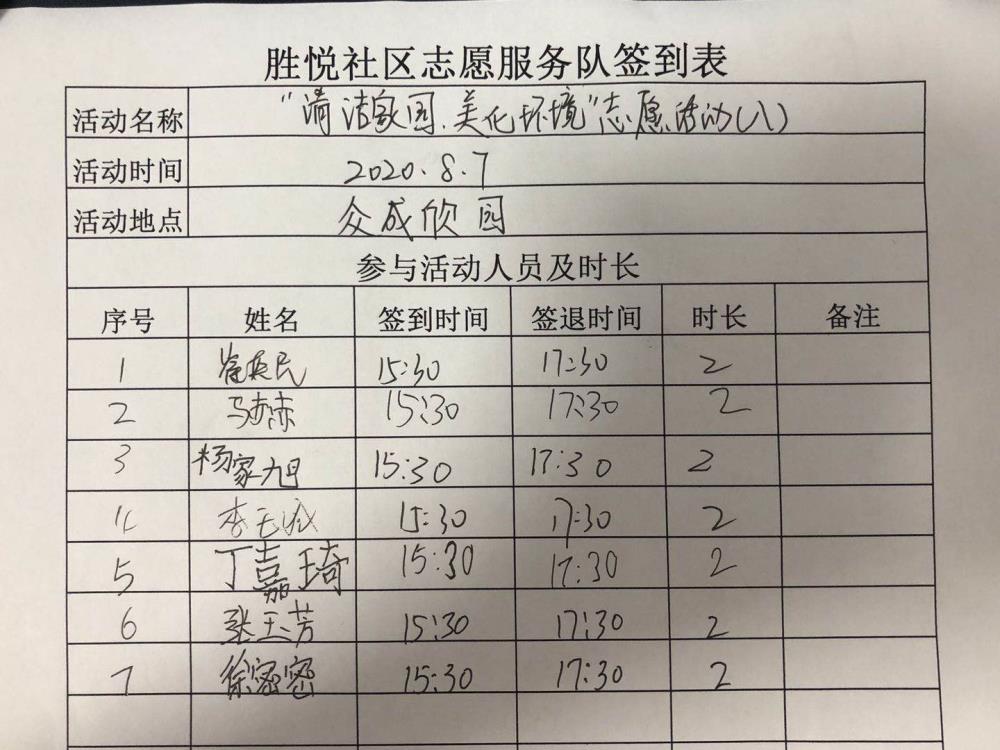 胜悦社区志愿服务队签到表
活动名称 “清洁家园.美化环境”志愿活动(八)
活动时间 2020.8.7
活动地点 众成欣园
参与活动人员及时长
序号 姓名 签到时间 签退时间 时长 备注
1 英民 15:30 17:30 2
2 马赤 15:30 17:30 2
3 杨家旭 15:30 17:30 2
4 李玉 15:30 17:30 2
5 丁嘉琦 15:30 17:30 2
6 张玉芳 15:30 17:30 2
7 徐密密 15:30 17:30 2